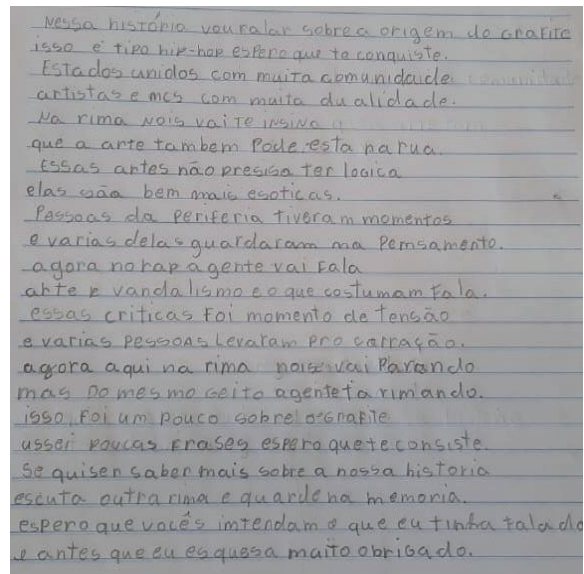 Nessa história vou falar sobre a origem do grafite
isso é tipo hip-hop espero que te conquiste.
Estados unidos com muita comunidade
artistas e mcs com muita dualidade.
Na rima nois vai te insina
que a arte tambem pode esta na rua.
Essas artes não presisa ter logica
elas são bem mais esoticas.
Pessoas da periferia tiveram momentos
e varias delas guardaram na pemsamento.
agora no rap agente vai fala
arte e vandalismo e o que costumam fala.
essas criticas foi momento de tensão
e varias pessoas levaram pro carração.
agora aqui na rima nois vai parando
mas do mesmo geito agente ta rimando.
isso foi um pouco sobre o grafite
ussei poucas frases espero que te consiste.
Se quiser saber mais sobre a nossa historia
escuta outra rima e guarde na memoria.
espero que vocês imtendam o que eu tinha falado
e antes que eu esquesa muito obrigado.